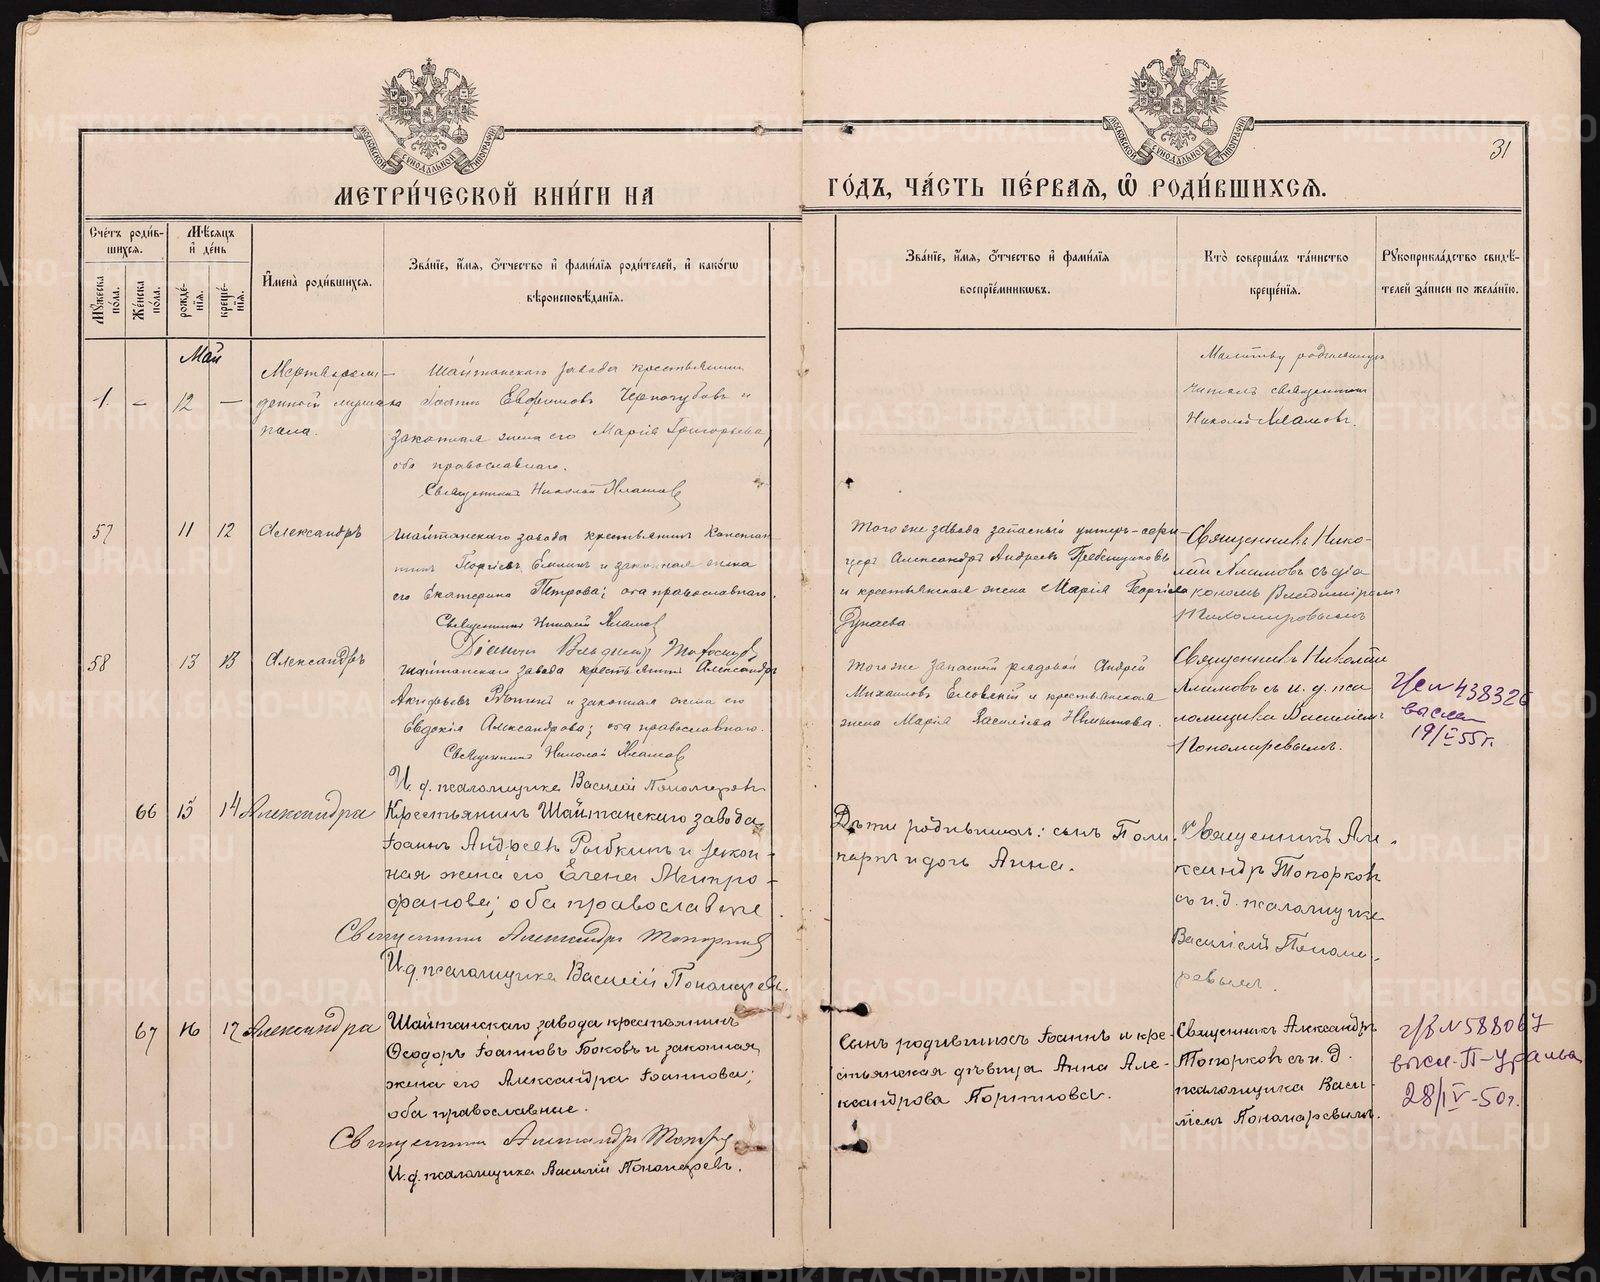 МОСКОВСКОЙ СѴНОДАЛЬНОЙ ТИПОГРАФІИ
МОСКОВСКОЙ СѴНОДАЛЬНОЙ ТИПОГРАФІИ
31
МЕТРИ́ЧЕСКОЙ КНИ́ГИ НА
ГО́ДЪ, ЧА́СТЬ ПЕ́РВАѦ, Ѽ РОДИ́ВШИХСѦ.
Сче́тъ роди́в-
шихсѧ.
Мꙋ́жеска по́ла.
Же́нска по́ла.
Мѣ́сѧцъ
и҆ де́нь
рожде́-
нїѧ.
креще́-
нїѧ.
И҆мена̀ роди́вшихсѧ.
Зва́нїе, и҆́мѧ, ѻ҆́тчество и҆ фами́лїѧ роди́телей, и҆ како́гѡ
вѣроисповѣ́данїѧ.
Зва́нїе, и҆́мѧ, ѻ҆́тчество и҆ фами́лїѧ
воспрїе́мникѡвъ.
Кто̀ соверша́лъ та́инство
креще́нїѧ.
Рꙋкоприкла́дство свидѣ́-
телей за́писи по жела́нїю.
Май
1. — 12 —
Мертворож-
денный мужска
пола.
Шайтанскаго завода крестьянинъ
Іоаннъ Евфимовъ Черногубовъ и
законная жена его Марія Григорьева,
оба православнаго.
Священникъ Николай
Молитву родильницѣ
читалъ священникъ
Николай
57 11 12 Александръ
Шайтанскаго завода крестьянинъ Констан
тинъ Георгіевъ и законная жена
его Екатерина Петрова; оба православнаго.
Священникъ Николай
Діаконъ
Того же завода запасный унтеръ-офи-
церъ Александръ Андреевъ Гребенщиковъ
и крестьянская жена Марія Георгіева
Дунаева
Священникъ Нико-
лай съ діа
кономъ Владиміромъ
Тихомировымъ
58 13 13 Александръ
Шайтанскаго завода крестьянинъ Александръ
и законная жена его
Евдокія Александрова; оба православнаго.
Священникъ Николай
И. д. псаломщика Василій Пономаревъ
Того же запасный рядовой Андрей
Михаиловъ и крестьянская
жена Марія Василіева
Священникъ Николай
съ и. д. пса
ломщика Василіемъ
Пономаревымъ.
№ 438326
выслан
19/V 55 г.
66 13 14 Александра
Крестьянинъ Шайтанскаго завода
Іоаннъ Андреевъ Рыбкинъ и закон-
ная жена его Елена Митро-
фанова; оба православные
Священникъ Александръ Топорковъ
И. д. псаломщика Василій Пономаревъ.
Дѣти родившихъ: сынъ Поли
карпъ и дочь Анна.
Священникъ Але-
ксандръ Топорковъ
съ и. д. псаломщика
Василіемъ Понома-
ревымъ.
67 16 17 Александра
Шайтанскаго завода крестьянинъ
Ѳеодоръ Іоанновъ Боковъ и законная
жена его Александра Іоаннова;
оба православные.
Священникъ Александръ
И. д. псаломщика Василій Пономаревъ.
Сынъ родившихъ Іоаннъ и кре-
стьянская дѣвица Анна Але-
ксандрова
Священникъ Александръ
Топорковъ съ и. д.
псаломщика Васи-
ліемъ Пономаревымъ.
№ 588067
высл. П-Уральск
28/IV-50 г.
METRIKI.GASO-URAL.RU